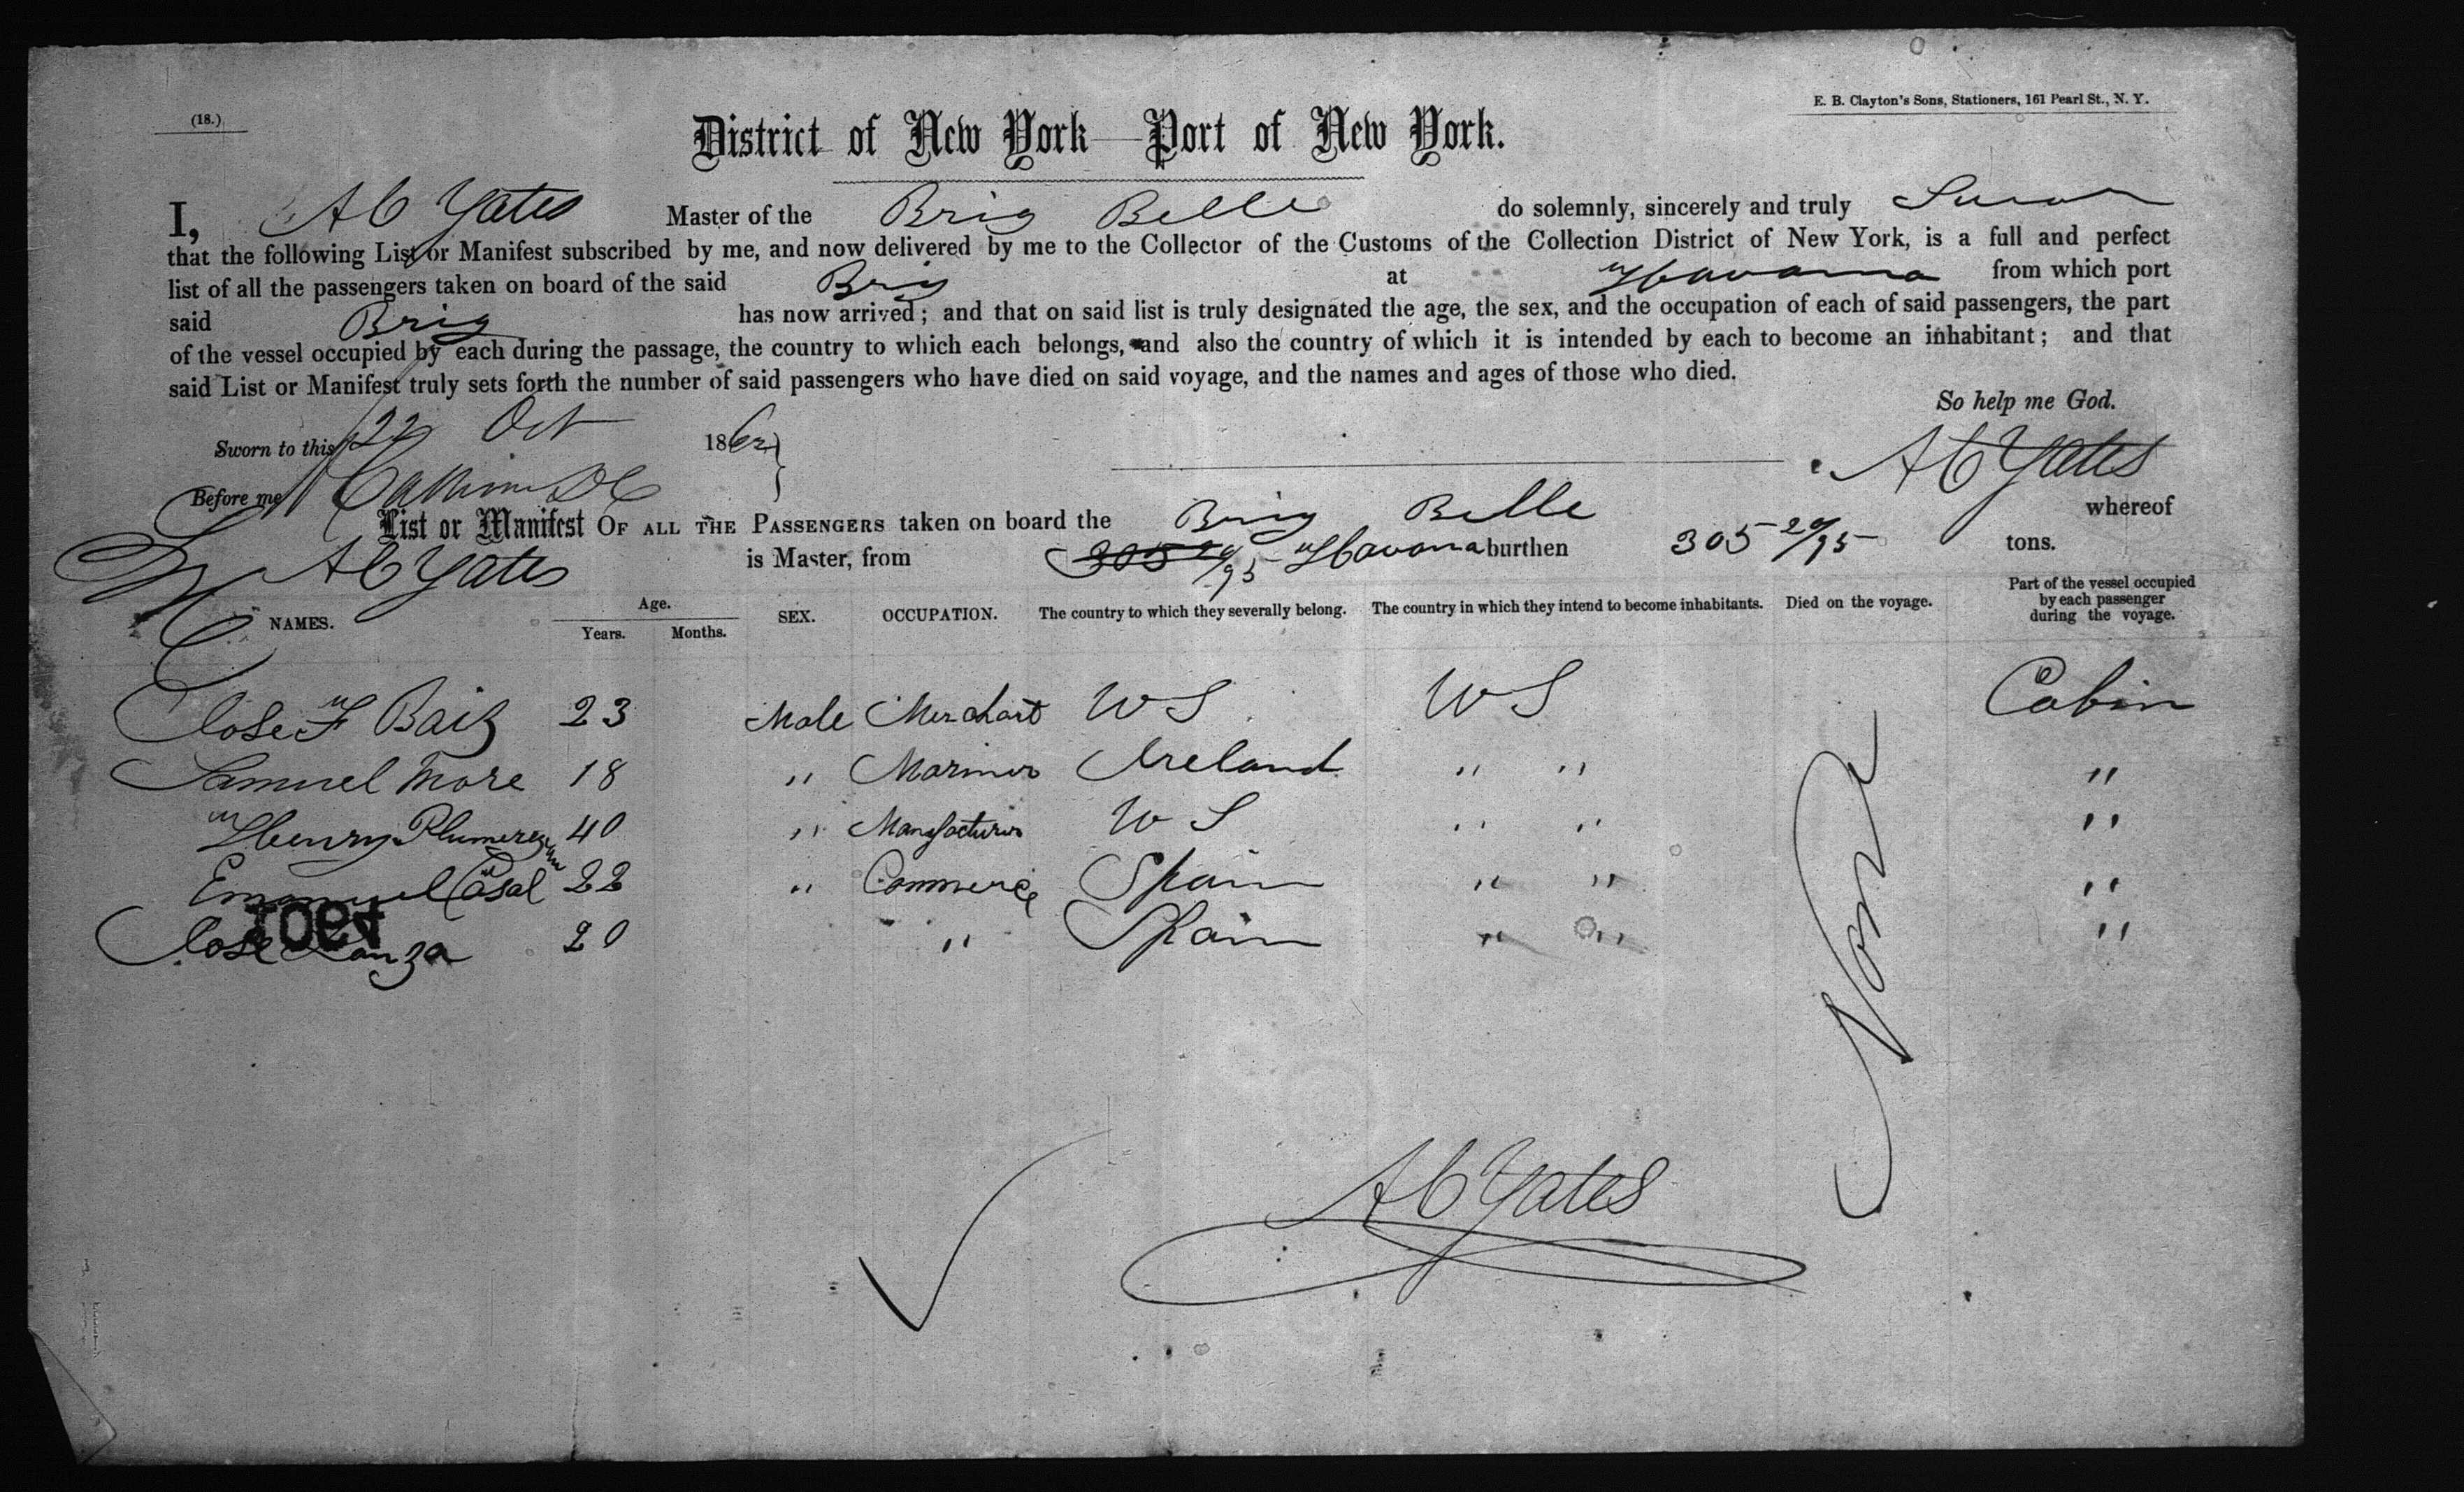 (18.)
E. B. Clayton's Sons, Stationers, 161 Pearl St., N. Y.
District of New York—Port of New York.
I, A C Yates Master of the Brig Belle do solemnly, sincerely and truly Swear
that the following List or Manifest subscribed by me, and now delivered by me to the Collector of the Customs of the Collection District of New York, is a full and perfect
list of all the passengers taken on board of the said Brig at Havana from which port
said Brig has now arrived; and that on said list is truly designated the age, the sex, and the occupation of each of said passengers, the part
of the vessel occupied by each during the passage, the country to which each belongs, and also the country of which it is intended by each to become an inhabitant; and that
said List or Manifest truly sets forth the number of said passengers who have died on said voyage, and the names and ages of those who died.
So help me God.
Sworn to this 22 Oct 1862
A C Yates
Before me
List or Manifest OF ALL THE PASSENGERS taken on board the Brig Belle whereof
A C Yates is Master, from Havana burthen 305 20/95 tons.
NAMES. Age. Years. Months. SEX. OCCUPATION. The country to which they severally belong. The country in which they intend to become inhabitants. Died on the voyage. Part of the vessel occupied by each passenger during the voyage.
Jose F Baiz 23 Male Merchant US US Cabin
Samuel More 18 " Mariner Ireland " " "
Henry Plumerey 40 " Manufacturer US " " "
Emanuel Casal 22 " Commerce Spain " " "
Jose Lanza 20 " Spain " " "
None
1091
A C Yates